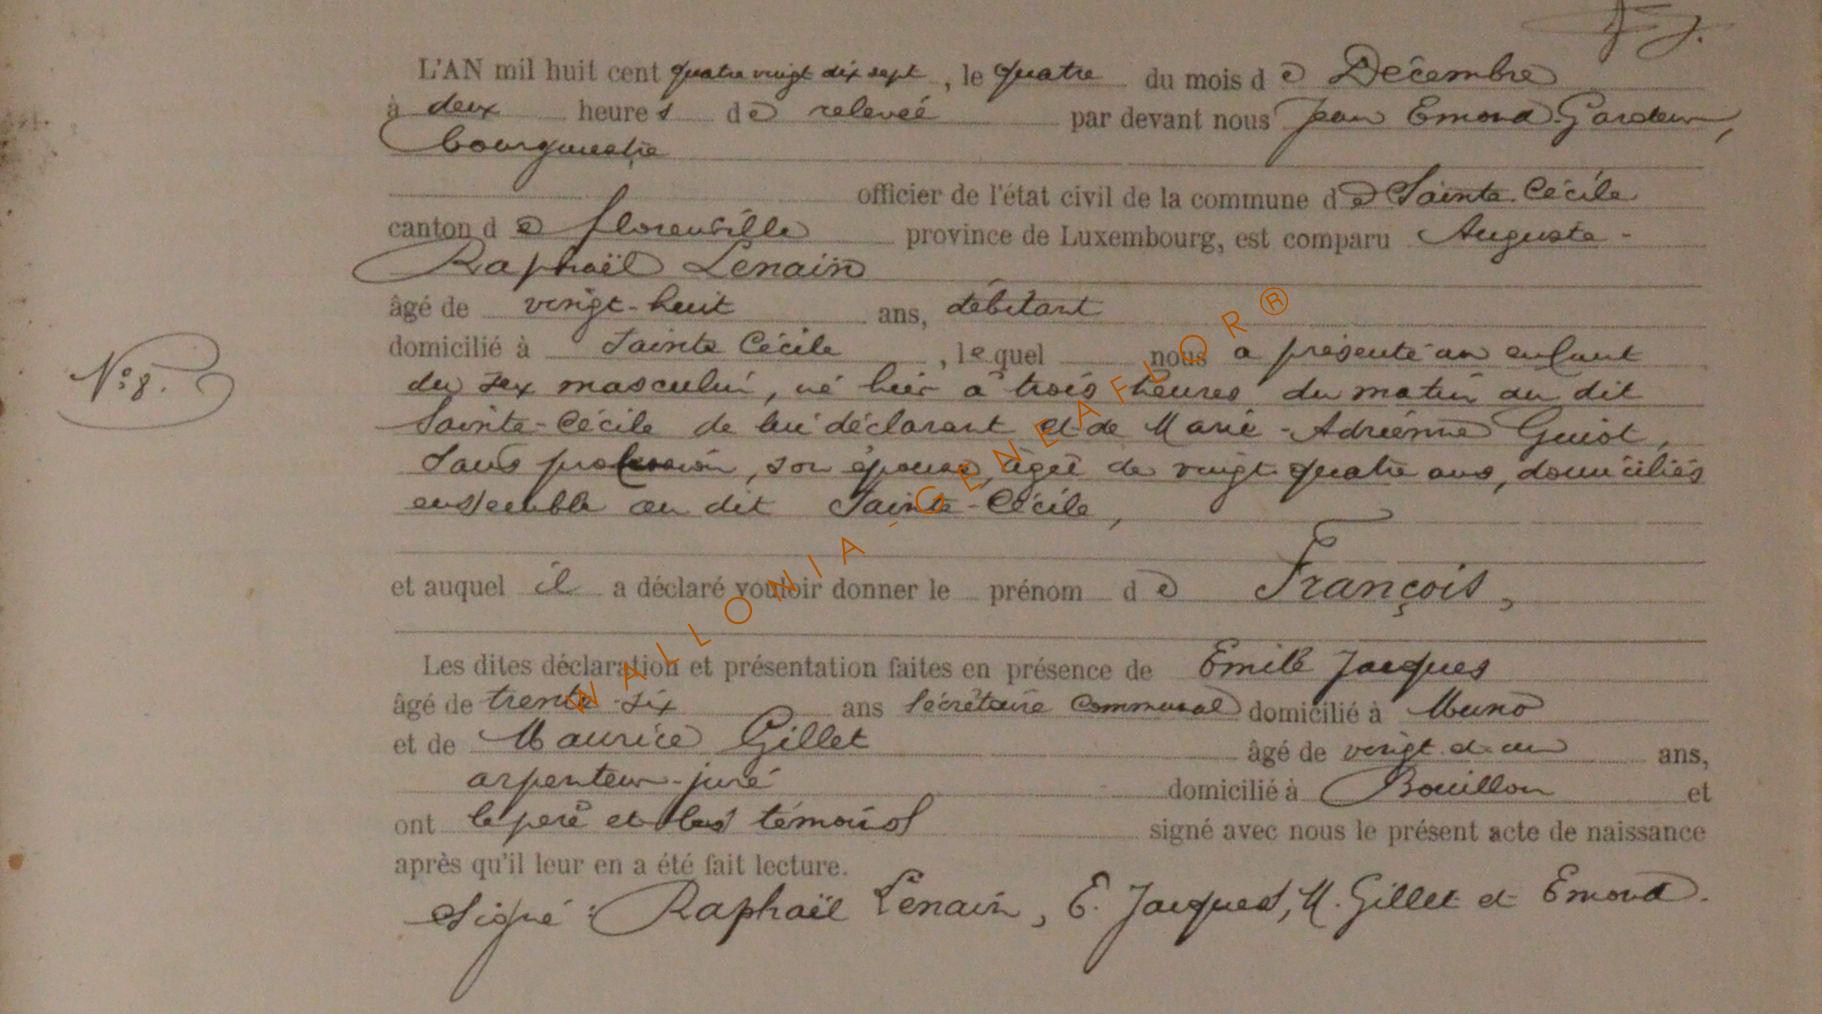 L'AN mil huit cent quatre vingt dix sept, le quatre du mois de Décembre
à deux heures de relevée par devant nous Jean Emond-Gardeur,
bourgmestre
officier de l'état civil de la commune de Sainte-Cécile
canton de Florenville province de Luxembourg, est comparu Auguste-
Raphaël Lenain
âgé de vingt-huit ans, débitant
domicilié à Sainte Cécile, lequel nous a présenté un enfant
N° 8. du sex masculin, né hier à trois heures du matin au dit
Sainte-Cécile de lui déclarant et de Marie-Adrienne Guiot,
sans profession, son épouse, âgée de vingt-quatre ans, domiciliés
ensemble au dit Sainte-Cécile,
et auquel il a déclaré vouloir donner le prénom de François,
Les dites déclaration et présentation faites en présence de Emile Jacques
âgé de trente-six ans secrétaire communal domicilié à Muno
et de Maurice Gillet âgé de vingt et un ans,
arpenteur-juré domicilié à Bouillon et
ont le père et les témoins signé avec nous le présent acte de naissance
après qu'il leur en a été fait lecture.
Signé: Raphaël Lenain, E. Jacques, M. Gillet et Emond.
WALLONIA-GENEAFLOR®